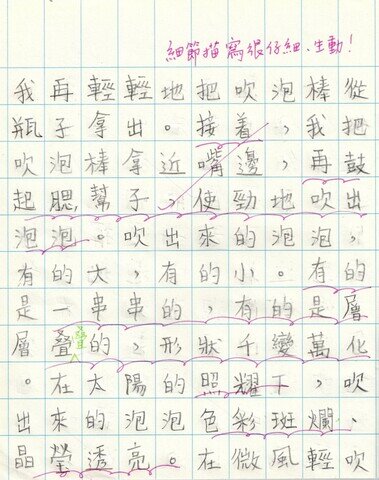 細節描寫很仔細、生動！
我再輕輕地把吹泡棒從
瓶子拿出。接着，我把
吹泡棒拿近嘴邊，再鼓
起腮幫子，使勁地吹出
泡泡。吹出來的泡泡，
有的大，有的小。有的
是一串串的，有的是層
層叠疊的，形狀千變萬化
。在太陽的照耀下，吹
出來的泡泡色彩斑斕、
晶瑩透亮。在微風輕吹